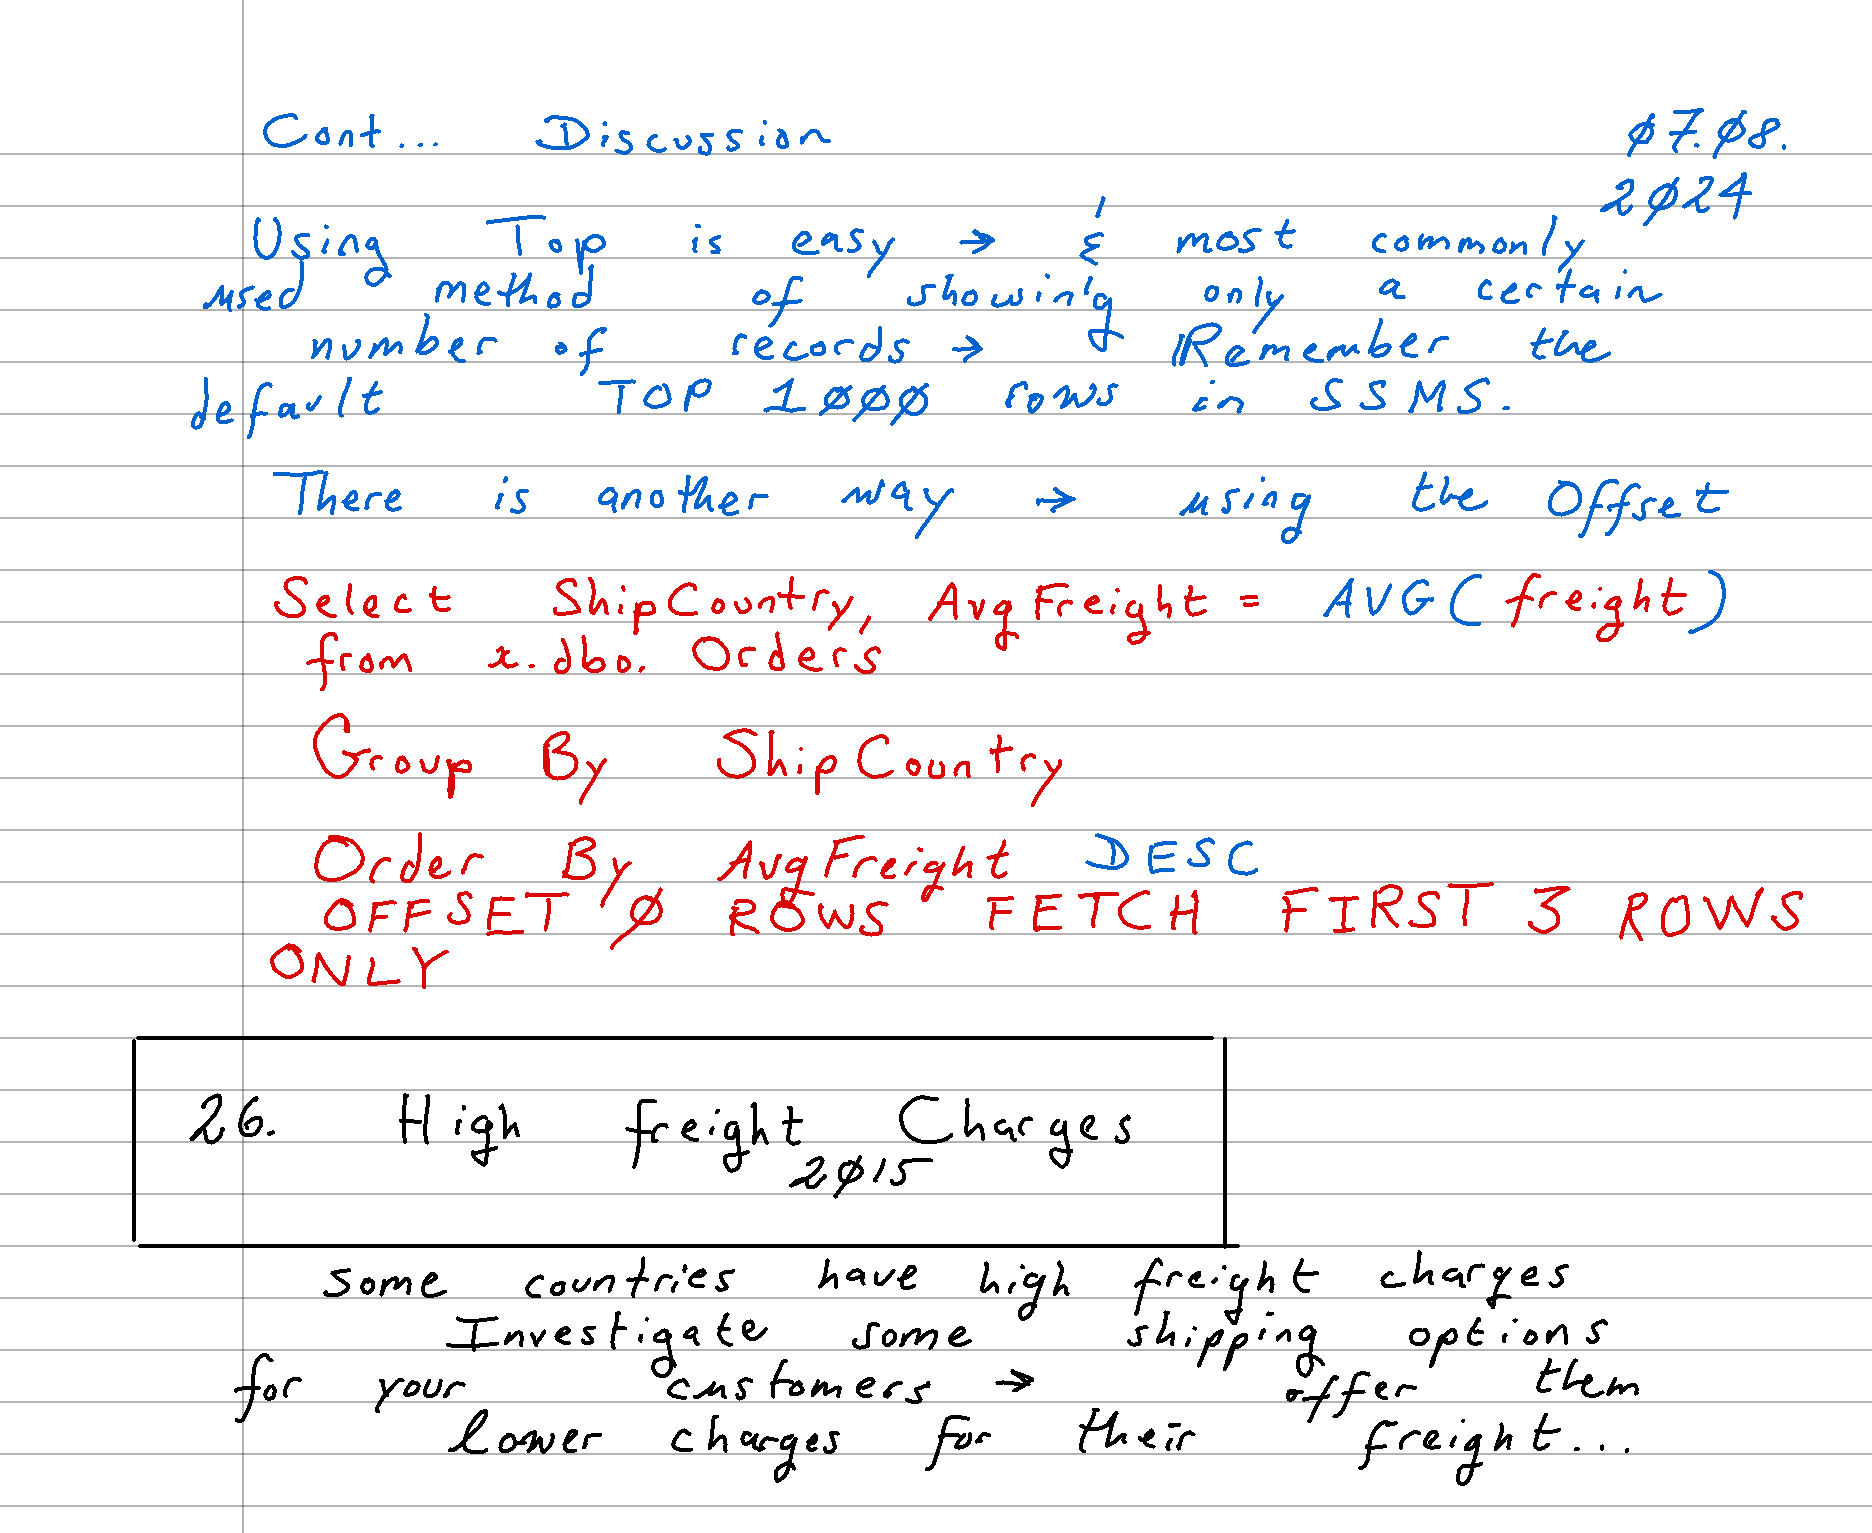 Cont... Discussion ø7.ø8.
2ø24
Using Top is easy → & most commonly
used method of showing only a certain
number of records → Remember the
default TOP 1øøø rows in SSMS.
There is another way → using the Offset
Select ShipCountry, AvgFreight = AVG(freight)
from x.dbo.Orders
Group By ShipCountry
Order By AvgFreight DESC
OFFSET ø ROWS FETCH FIRST 3 ROWS
ONLY
26. High freight Charges
2ø15
Some countries have high freight charges
Investigate some shipping options
for your customers → offer them
lower charges for their freight...